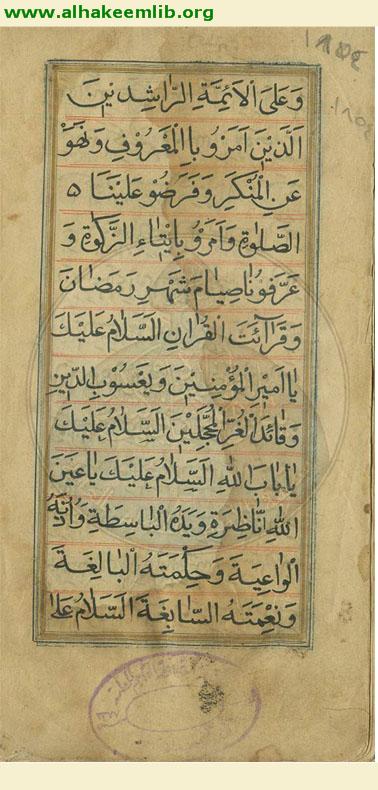 www.alhakeemlib.org
وَعَلَى الْاَئِمَّةِ الرَّاشِدِنِيَن
الَّذِينَ اَمَرُو بِالْمَعْرُوفِ وَنَهَوْ
عَنِ الْمُنْكَرِ وَفَرَضُوْ عَلَيْنَا ٥
الصَّلٰوةِ وَاَمَرُو بِاِيْتَاءِ الزَّكٰوةِ وَ
عَرَّفُونَاصِيٰامَ شَهْرِ رَمَضٰانَ
وَقَرٰائَتَ الْقُرٰانِ اَلسَّلٰامُ عَلَيْكَ
يٰا اَمِيرَ الْمُؤْمِنِيْنَ وَيَعْسُوْبِ الدّينِ
وَقٰائِدَ الْغُرِّ الْمُحَجَّلِيْنَ اَلسَّلٰامُ عَلَيْكَ
يٰابٰابَ اللهِ اَلسَّلٰامُ عَلَيْكَ يٰاعَيْنَ
اللهِ النّٰاظِرَةِ وَيَدَهُ الْبٰاسِطَةِ وَاُذُنَهُ
الْوٰاعِيَةِ وَحِكْمَتَهُ الْبٰالِغَةَ
وَنِعْمَتَهُ السّٰابِغَةَ اَلسَّلٰامُ عَلٰا